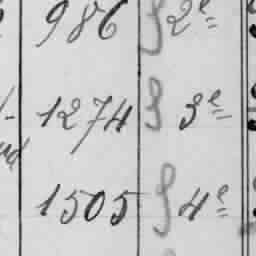 986 2e
1274 3e
1505 4e